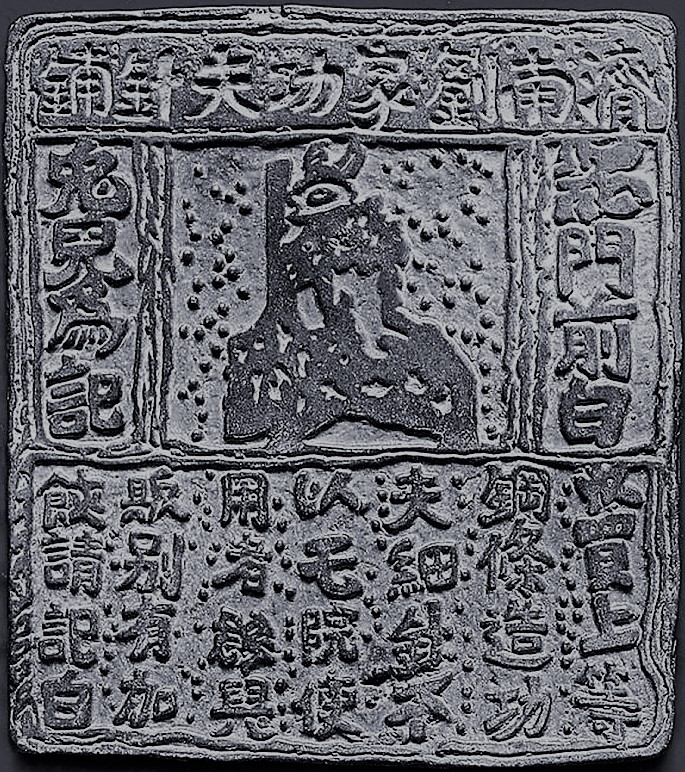 濟南劉家功夫針鋪
認門前白
兔兒爲記
收買上等
鋼條造功
夫細針不
院使
用
販別有加
饒請記白